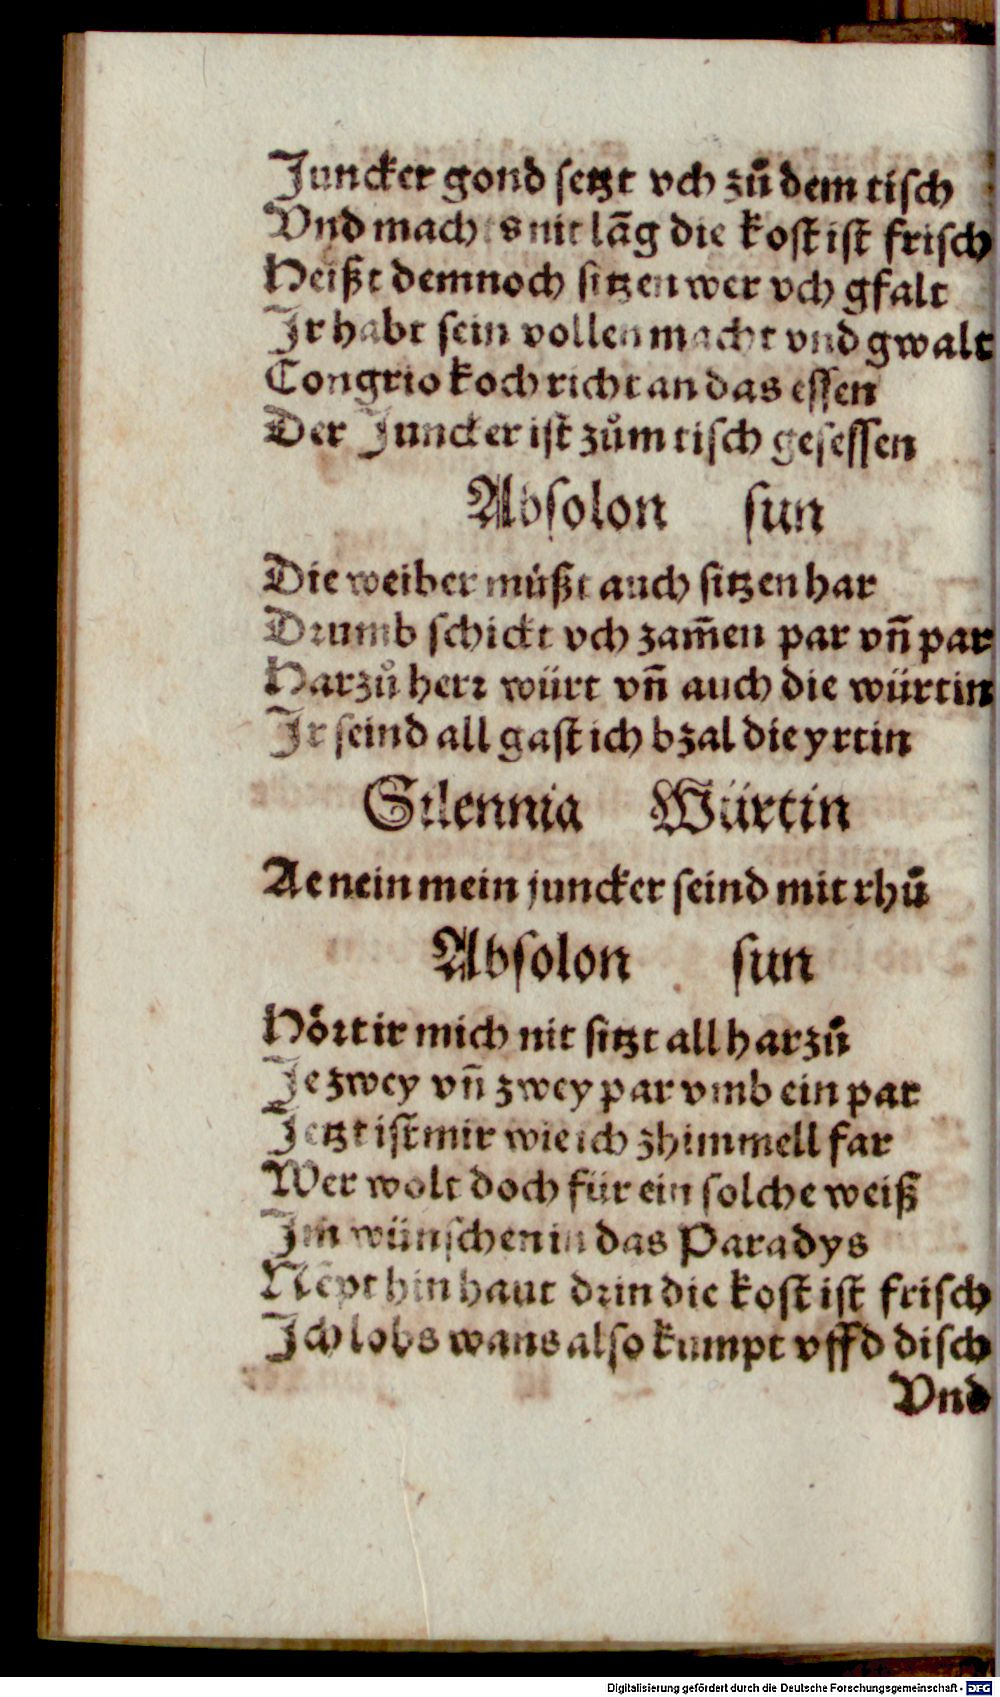 Juncker gond setzt vch zů dem tisch
Vnd machts nit lãg die kost ist frisch
Heißt demnoch sitzen wer vch gfalt
Jr habt sein vollen macht vnd gwalt
Congrio koch richt an das essen
Der Juncker ist zům tisch gesessen
Absolon sun
Die weiber müßt auch sitzen har
Drumb schickt vch zam̃en par vñ par
Harzů herr würt vñ auch die würtin
Jr seind all gast ich bzal die yrtin
Silennia Würtin
Ae nein mein juncker seind mit rhů
Absolon sun
Hört ir mich nit sitzt all harzů
Je zwey vñ zwey par vmb ein par
Jetzt ist mir wie ich zhimmell far
Wer wolt doch für ein solche weiß
Jm wünschen in das Paradys
Nẽpt hin haut drin die kost ist frisch
Jch lobs wans also kumpt vffd disch
Vnd
Digitalisierung gefördert durch die Deutsche Forschungsgemeinschaft - DFG